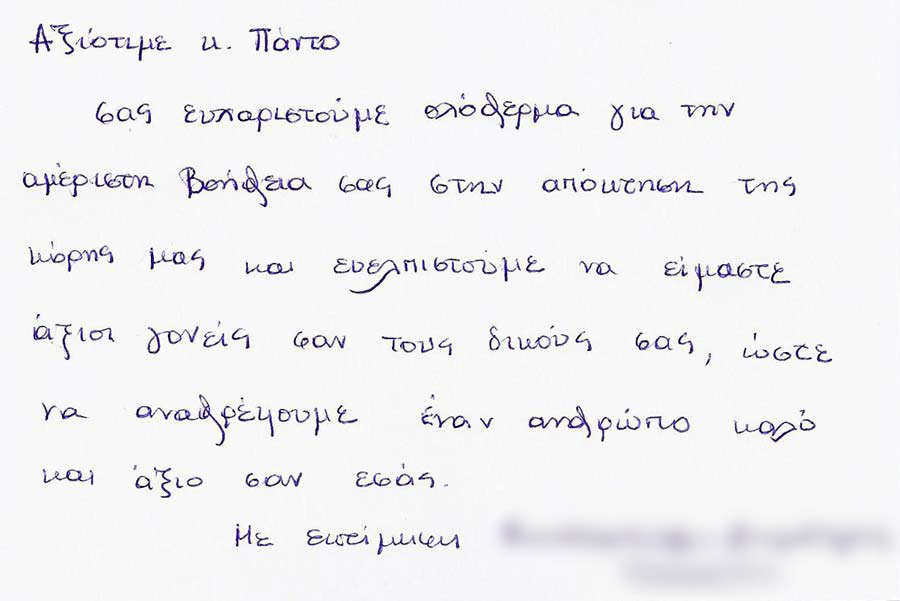 Αξιότιμε κ. Πάντο
σας ευχαριστούμε ολόθερμα για την
αμέριστη βοήθεια σας στην απόκτηση της
κόρης μας και ευελπιστούμε να είμαστε
άξιοι γονείς σαν τους δικούς σας, ώστε
να αναθρέψουμε έναν ανθρώπο καλό
και άξιο σαν εσάς.
Με εκτίμηση